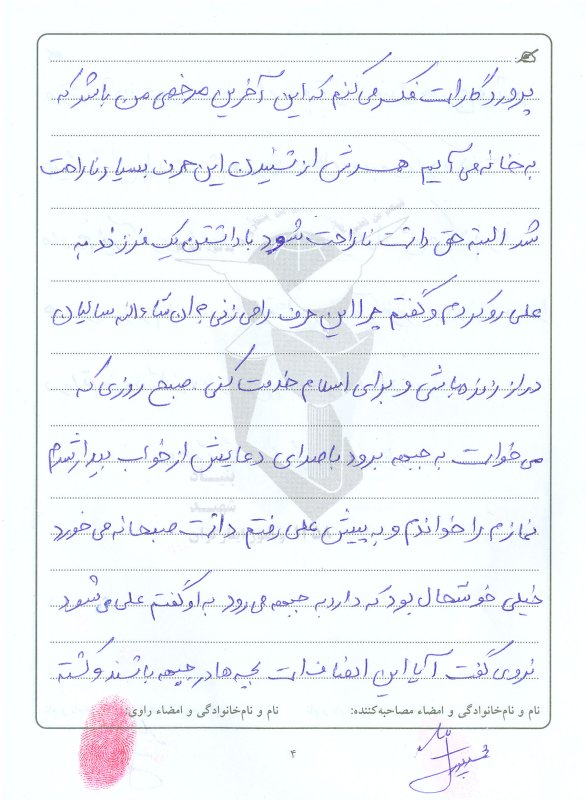 پروردگار است فکر می کنم که این آخرین مرخصی من باشد که
به خانه می آیم همسرش از شنیدن این حرف بسیار ناراحت
شد البته حق داشت ناراحت شود با داشتن یک فرزند به
علی رو کردم و گفتم چرا این حرف را می زنی؟ ان شاءالله سالیان
دراز زنده باشی و برای اسلام خدمت کنی. صبح روزی که
می خواست به جبهه برود با صدای دعایش از خواب بیدار شدم
نمازم را خواندم و به پیش علی رفتم داشت صبحانه می خورد
خیلی خوشحال بود که دارد به جبهه می رود به او گفتم علی می شود
نروی گفت آیا این انصاف است بچه ها در جبهه باشند و کشته
نام و نام‌خانوادگی و امضاء مصاحبه‌کننده:
نام و نام‌خانوادگی و امضاء راوی:
۴